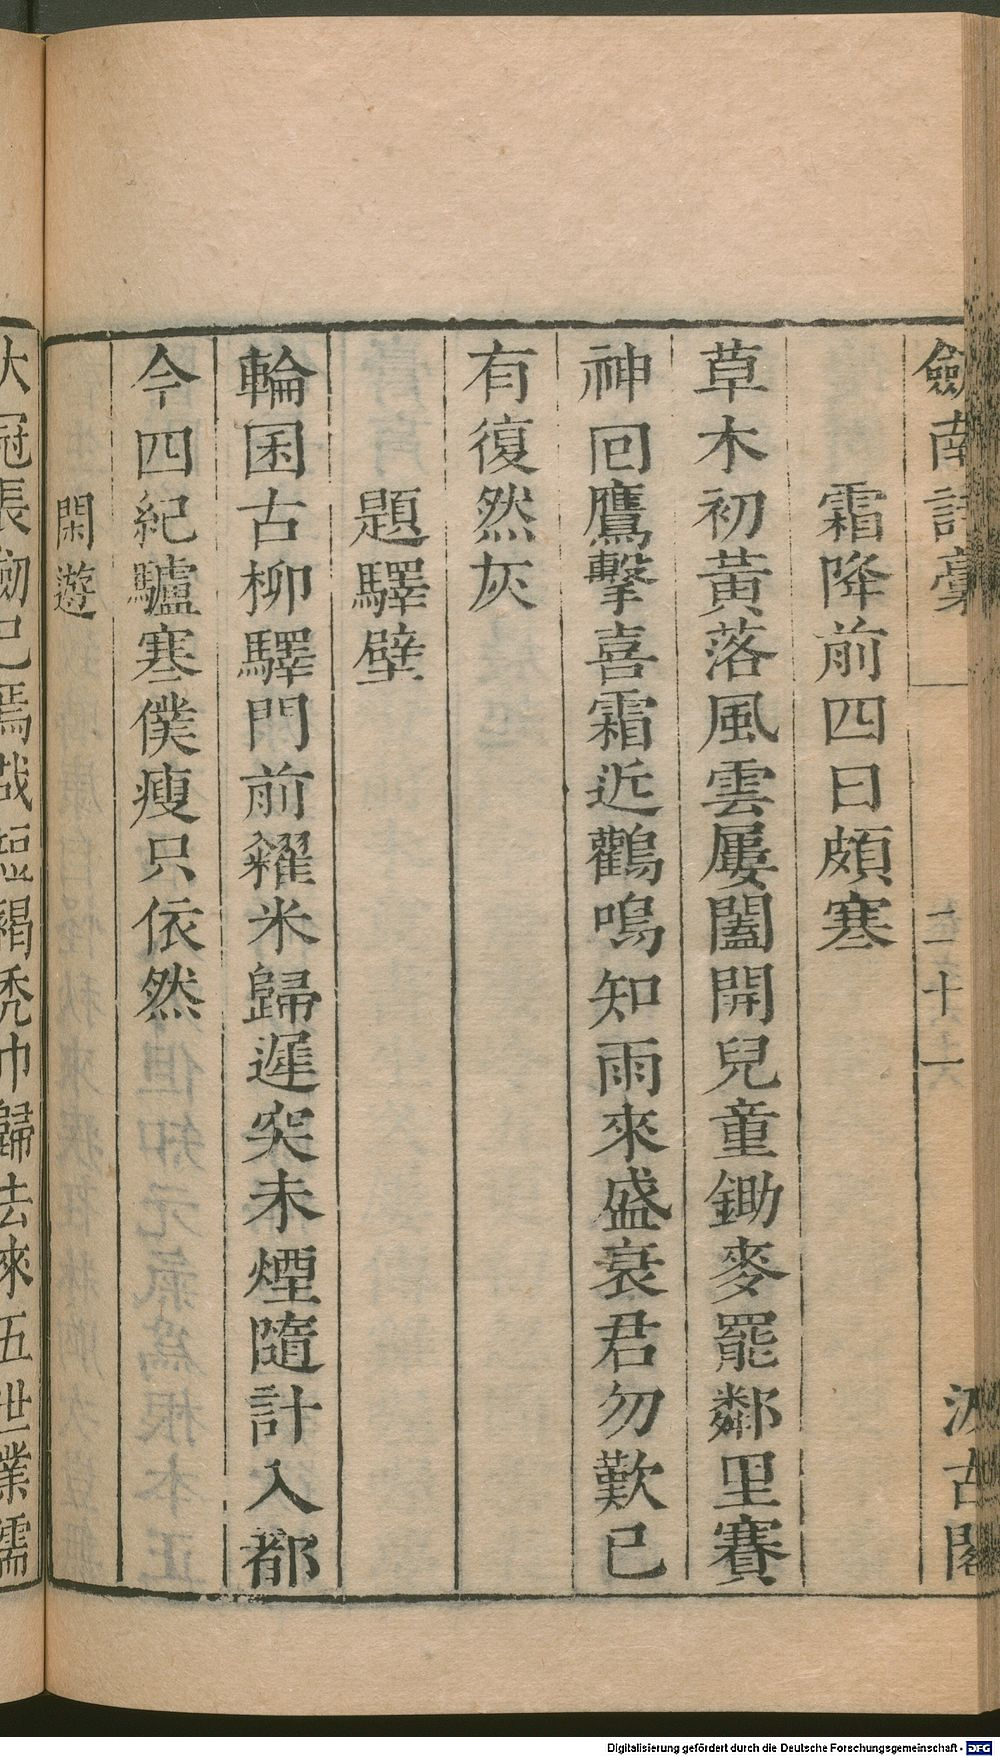 劔南詩藁 二十一 汲古閣
霜降前四日頗寒
草木初黃落風雲屢闔開兒童鋤麥罷鄰里賽
神回鷹擊喜霜近鸛鳴知雨來盛衰君勿歎已
有復然灰
題驛壁
輪囷古柳驛門前糴米歸遲突未煙隨計入都
今四紀驢寒僕瘦只依然
閑遊
大冠長劒已焉哉短褐禿巾歸去來五世業儒
Digitalisierung gefördert durch die Deutsche Forschungsgemeinschaft - DFG